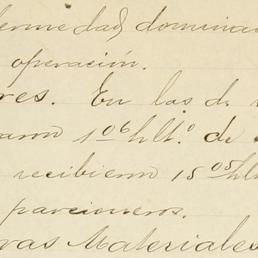 fermedad, dominan
operación.
res. En las de
aron 106 hlt.º de
recibieron 1505 hl
parcioneros.
ras Materiales